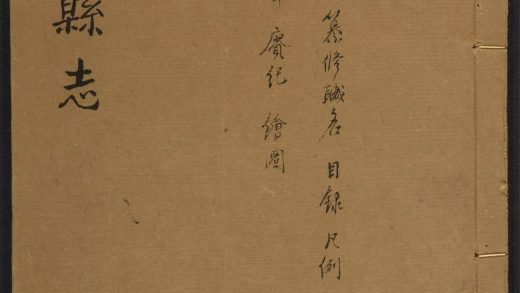 纂修職名 目録 凡例
賡紀 繪圖
縣志